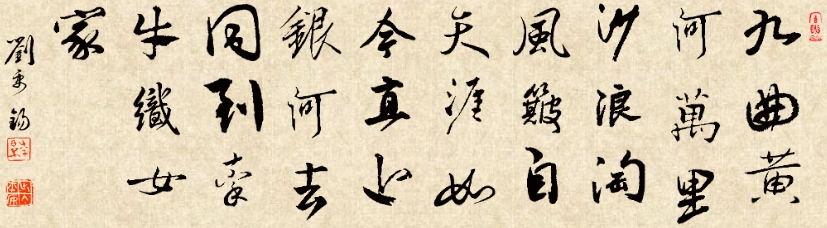 九曲黄
河萬里
沙浪淘
風簸自
天涯如
今直上
銀河去
同到牵
牛織女
家
劉禹錫